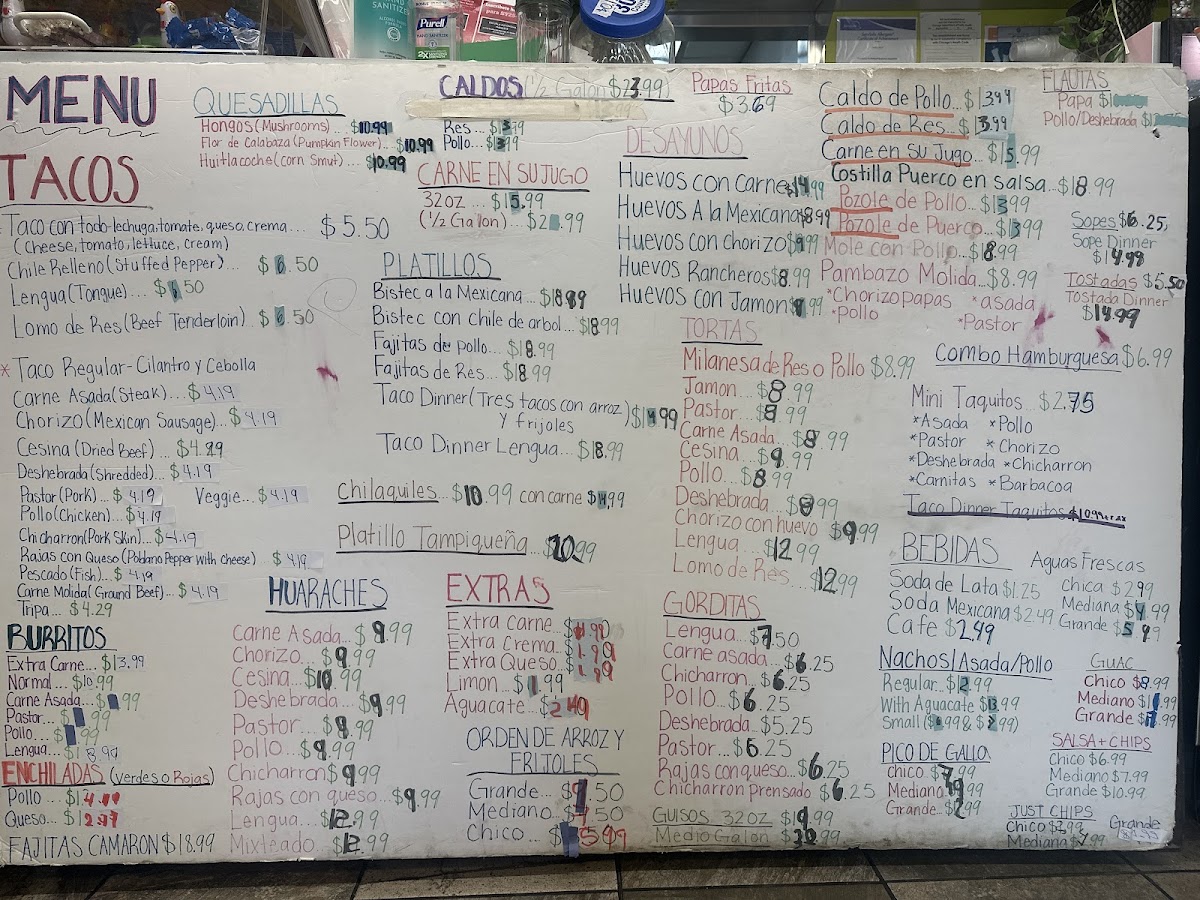 Purell
MENU
TACOS
Taco con todo-lechuga, tomate, queso, crema.... $5.50
(cheese, tomato, lettuce, cream)
Chile Relleno (Stuffed Pepper)... $6.50
Lengua (Tongue)... $6.50
Lomo de Res (Beef Tenderloin). $6.50
* Taco Regular-Cilantro y Cebolla
Carne Asada (Steak)... $4.19
Chorizo (Mexican Sausage)... $4.19
Cesina (Dried Beef)... $4.29
Deshebrada (Shredded)... $4.19
Pastor (Pork)... $4.19 Veggie... $4.19
Pollo (Chicken)... $4.19
Chicharron (Pork Skin)... $4.19
Rajas con Queso (Poblano Pepper with cheese) $4.19
Pescado (Fish)... $4.19
Carne Molida (Ground Beef)... $4.19
Tripa... $4.29
BURRITOS
Extra Carne... $13.99
Normal... $10.99
Carne Asada...
Pastor...
Pollo...
Lengua...
ENCHILADAS (verdes o Rojas)
Pollo...
Queso...
FAJITAS CAMARON $18.99
QUESADILLAS
Hongos (Mushrooms).... $10.99
Flor de Calabaza (Pumpkin Flower)... $10.99
Huitlacoche (corn Smut)... $10.99
CALDOS (1/2 Galon $23.99)
Res... $13.99
Pollo... $13.99
CARNE EN SU JUGO
32oz ... $15.99
(1/2 Galon)
PLATILLOS
Bistec a la Mexicana... $18.99
Bistec con Chile de arbol... $18.99
Fajitas de pollo... $18.99
Fajitas de Res... $18.99
Taco Dinner (Tres tacos con arroz y frijoles)
Taco Dinner Lengua... $18.99
Chilaquiles... $10.99 con carne
Platillo Tampiqueña... $20.99
HUARACHES
Carne Asada... $9.99
Chorizo... $9.99
Cesina... $10.99
Deshebrada... $9.99
Pastor... $9.99
Pollo... $9.99
Chicharron $9.99
Rajas con queso... $9.99
Lengua... $12.99
Mixteado... $12.99
EXTRAS
Extra carne...
Extra Crema... $1.99
Extra Queso... $1.99
Limon... $1.99
Aguacate...
ORDEN DE ARROZ Y
FRIJOLES
Grande...
Mediano...
Chico...
Papas Fritas
$3.69
DESAYUNOS
Huevos con Carne $14.99
Huevos A la Mexicana $8.99
Huevos con chorizo $9.99
Huevos Rancheros $8.99
Huevos con Jamon
TORTAS
Milanesa de Res o Pollo $8.99
Jamon... $8.99
Pastor... $8.99
Carne Asada... $8.99
Cesina... $9.99
Pollo... $8.99
Deshebrada... $8.99
Chorizo con huevo $9.99
Lengua... $12.99
Lomo de Res... $12.99
GORDITAS
Lengua... $7.50
Carne asada... $6.25
Chicharron... $6.25
Pollo... $6.25
Deshebrada... $5.25
Pastor... $6.25
Rajas con queso... $6.25
Chicharron prensado $6.25
GUISOS 32oz $19.99
Medio Galon
Caldo de Pollo... $13.99
Caldo de Res... $13.99
Carne en su Jugo... $15.99
Costilla Puerco en salsa... $18.99
Pozole de Pollo... $13.99
Pozole de Puerco... $13.99
Mole con Pollo... $18.99
Pambazo Molida... $8.99
*Chorizo papas *asada
*Pollo *Pastor
FLAUTAS
Papa
Pollo/Deshebrada
Sopes $6.25,
Sope Dinner
$14.99
Tostadas $5.50
Tostada Dinner
$14.99
Combo Hamburguesa $6.99
Mini Taquitos... $2.75
*Asada *Pollo
*Pastor *Chorizo
*Deshebrada *Chicharron
*Carnitas *Barbacoa
Taco Dinner Taquitos
BEBIDAS
Soda de Lata $1.25
Soda Mexicana $2.49
Cafe $2.49
Aguas Frescas
Chica $2.99
Mediana $4.99
Grande
Nachos/Asada/Pollo
Regular...
With Aguacate
Small
PICO DE GALLO
chico
Mediano
Grande
GUAC
Chico $8.99
Mediano
Grande
SALSA + CHIPS
Chico $6.99
Mediano $7.99
Grande $10.99
JUST CHIPS
Chico
Mediana
Grande